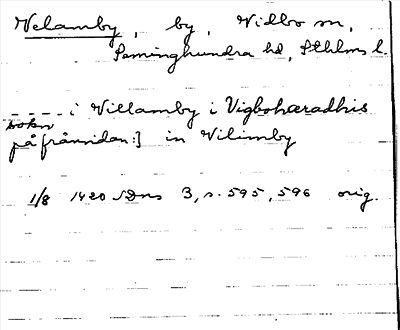 Velamby, by, Vidbo sn,
Seminghundra hd, Sthlms l.
- - - - i Villamby i Vigbohæradhis
sokn
på frånsidan:] in Vilimby
1/8 1420 SDns 3, s. 595, 596 orig.